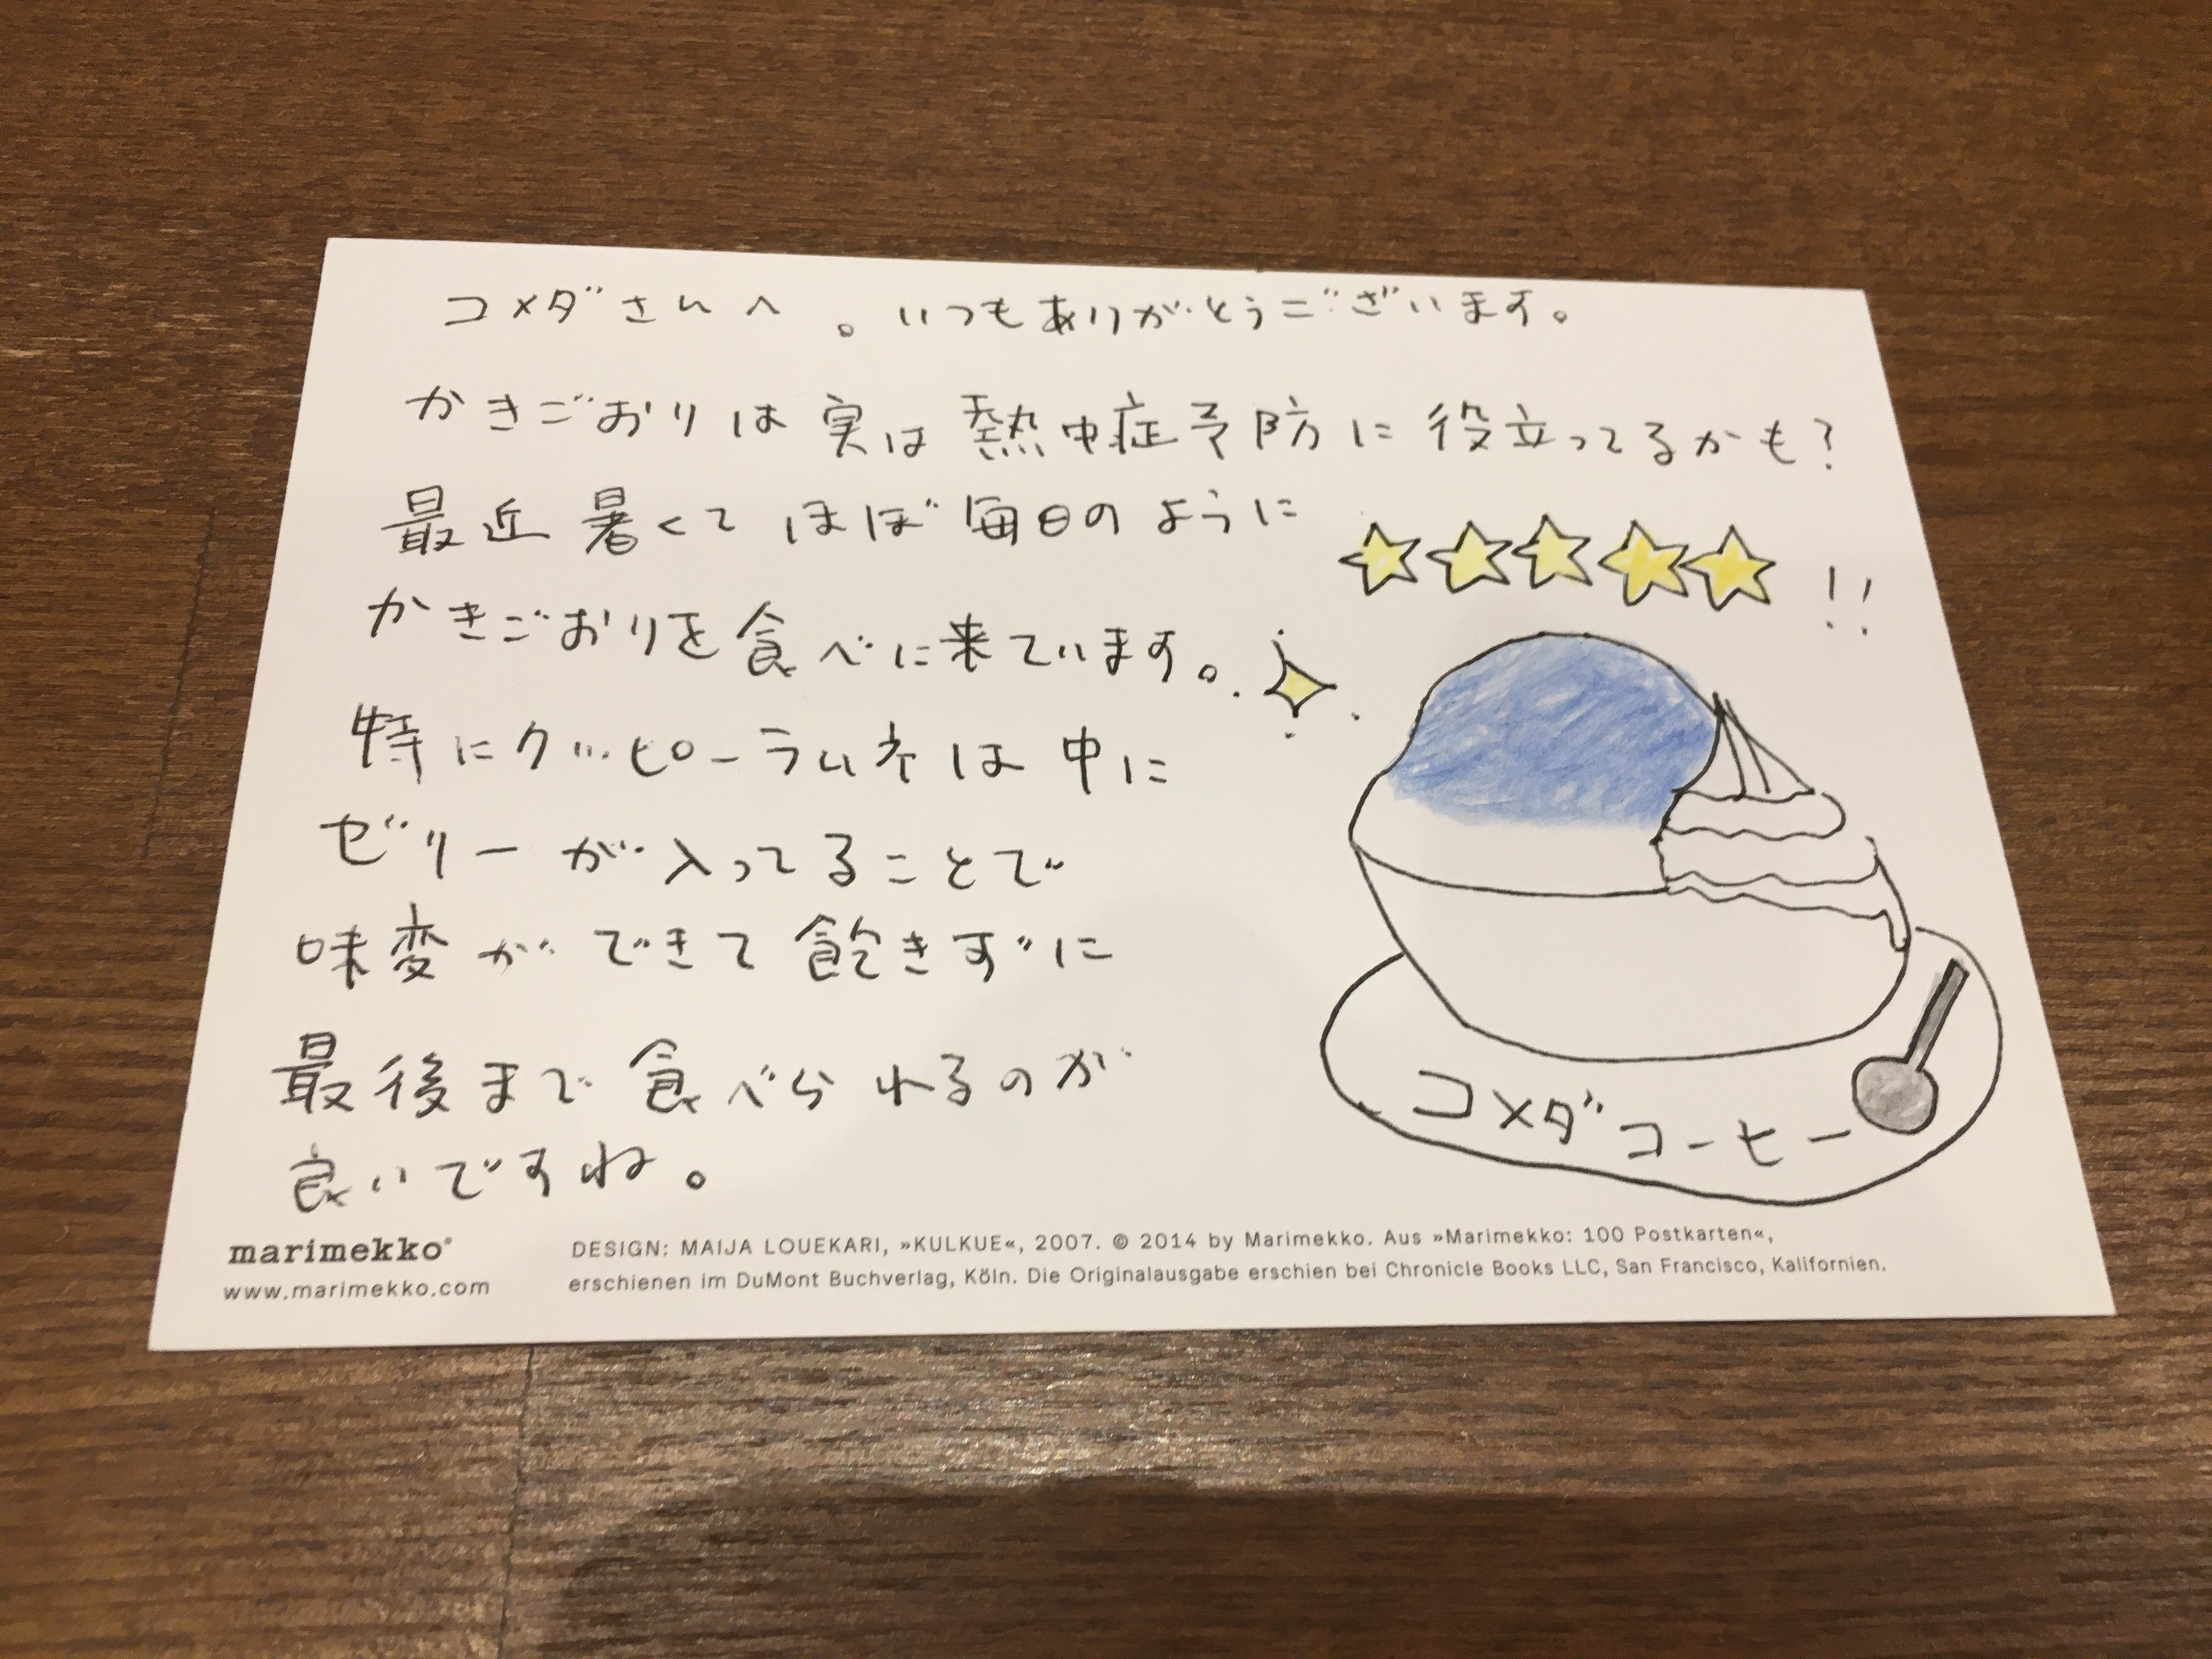 コメダさんへ。いつもありがとうございます。
かきごおりは実は熱中症予防に役立ってるかも?
最近暑くてほぼ毎日のように
かきごおりを食べに来ています。
特にクッピーラムネは中に
ゼリーが入ってることで
味変ができて飽きずに
最後まで食べられるのが
良いですね。
!!
コメダコーヒー
marimekko®
www.marimekko.com
DESIGN: MAIJA LOUEKARI, »KULKUE«, 2007. © 2014 by Marimekko. Aus »Marimekko: 100 Postkarten«,
erschienen im DuMont Buchverlag, Köln. Die Originalausgabe erschien bei Chronicle Books LLC, San Francisco, Kalifornien.